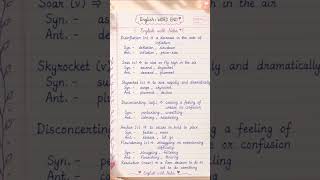 English WORD END
English with Neha
Disinflation (n) → a decrease in the rate of inflation
Syn. - deflation, slowdown
Ant. - inflation, price-rise
Soar (v) → to rise or fly high in the air
Syn. - ascend, skyrocket
Ant. - descend, plummet
Skyrocket (v) → to rise rapidly and dramatically
Syn. - surge, skyrocket
Ant. - plummet, decline
Disconcerting (adj.) → causing a feeling of unease or confusion
Syn. - perturbing, unsettling
Ant. - calming, reassuring
Anchor (v) → to secure or hold in place
Syn. - fasten, moor
Ant. - release, let go
Floundering (v) → struggling or
Syn. - struggling, faltering
Ant. - flourishing, thriving
Resolution (noun) → a firm decision to do or not to do
English with Neha
Soar (v)
Syn. - as
Ant. - de
in the air
Skyrocket (v)
Syn. -
Ant. -
and dramatically
Disconcerting
Syn. -
Ant. -
a feeling of
or confusion